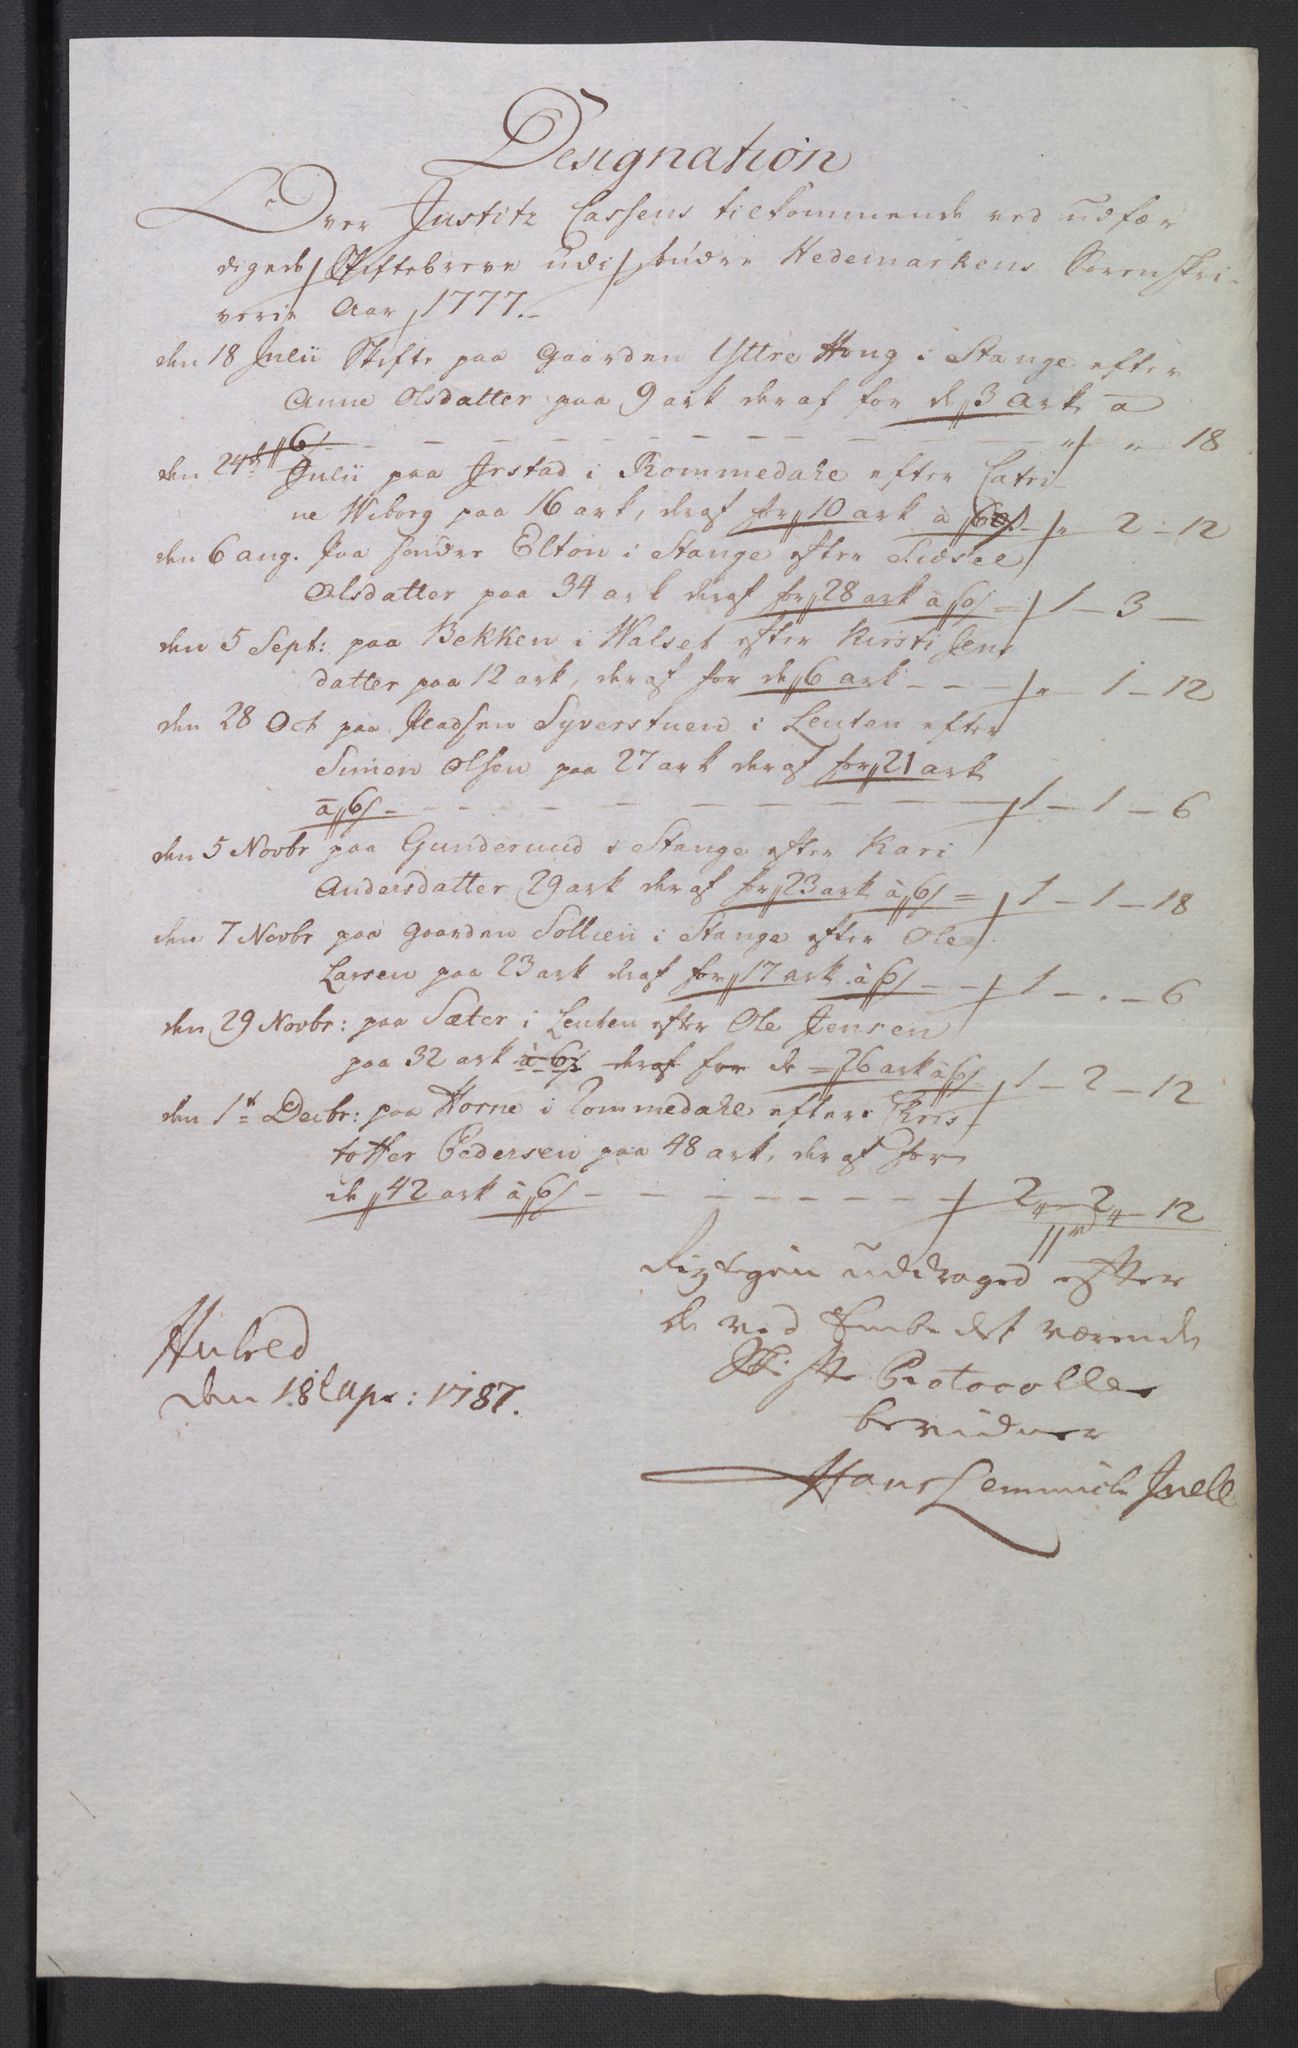 Designation
Over Justitz Cassens tilkommende ved udfær
digede Skiftebreve udi søndre Hedemarkens Sorenskri-
verie Aar 1777.
den 18 Julii Skifte paa Gaarden Yttre Hong i Stange efter
Anne Olsdatter paa 9 ark deraf for de 3 Ark a
6 s - - - - - - - - - " - " - 18
den 24de Julii paa Irstad i Rommedahl efter Catri
ne Wiborg paa 16 ark, deraf for 10 ark à 6 s - " 2 - 12
den 6 aug. Paa søndre Elton i Stange efter Sidsel
Olsdatter paa 34 ark deraf for 28 ark a 6 s = 1 - 3 -
den 5 Sept: paa Bekken i Walset efter Kirsti Jens
datter paa 12 ark, deraf for de 6 ark - - - " - 1 - 12
den 28 Oct paa Pladsen Syverstuen i Leuten efter
Simen Olsen paa 27 ark deraf for 21 ark
a 6 s - - - - - - - - - 1 - 1 - 6
den 5 Novbr paa Gunderuud i Stange efter Kari
Andersdatter 29 ark deraf for 23 ark à 6 s = 1 - 1 - 18
den 7 Novbr paa Gaarden Sollien i Stange efter Ole
Larsen paa 23 ark deraf for 17 ark à 6 s - - 1 - " - 6
den 29 Novbr: paa Sæter i Leuten efter Ole Jensen
paa 32 ark à 6 s deraf for de = 26 ark à 6 s 1 - 2 - 12
den 1te Decbr: paa Horne i Rommedahl efter Chris
toffer Pedersen paa 48 ark, deraf for
de 42 ark à 6 s - - - - - - - 2 - 2 - 12
11 rd
Rigtigen uddraged efter
de ved Embedet værende
Skifte Protocoller
bevidner
Hulsed
den 18de Apr: 1787.
Hans Lemmich Juell